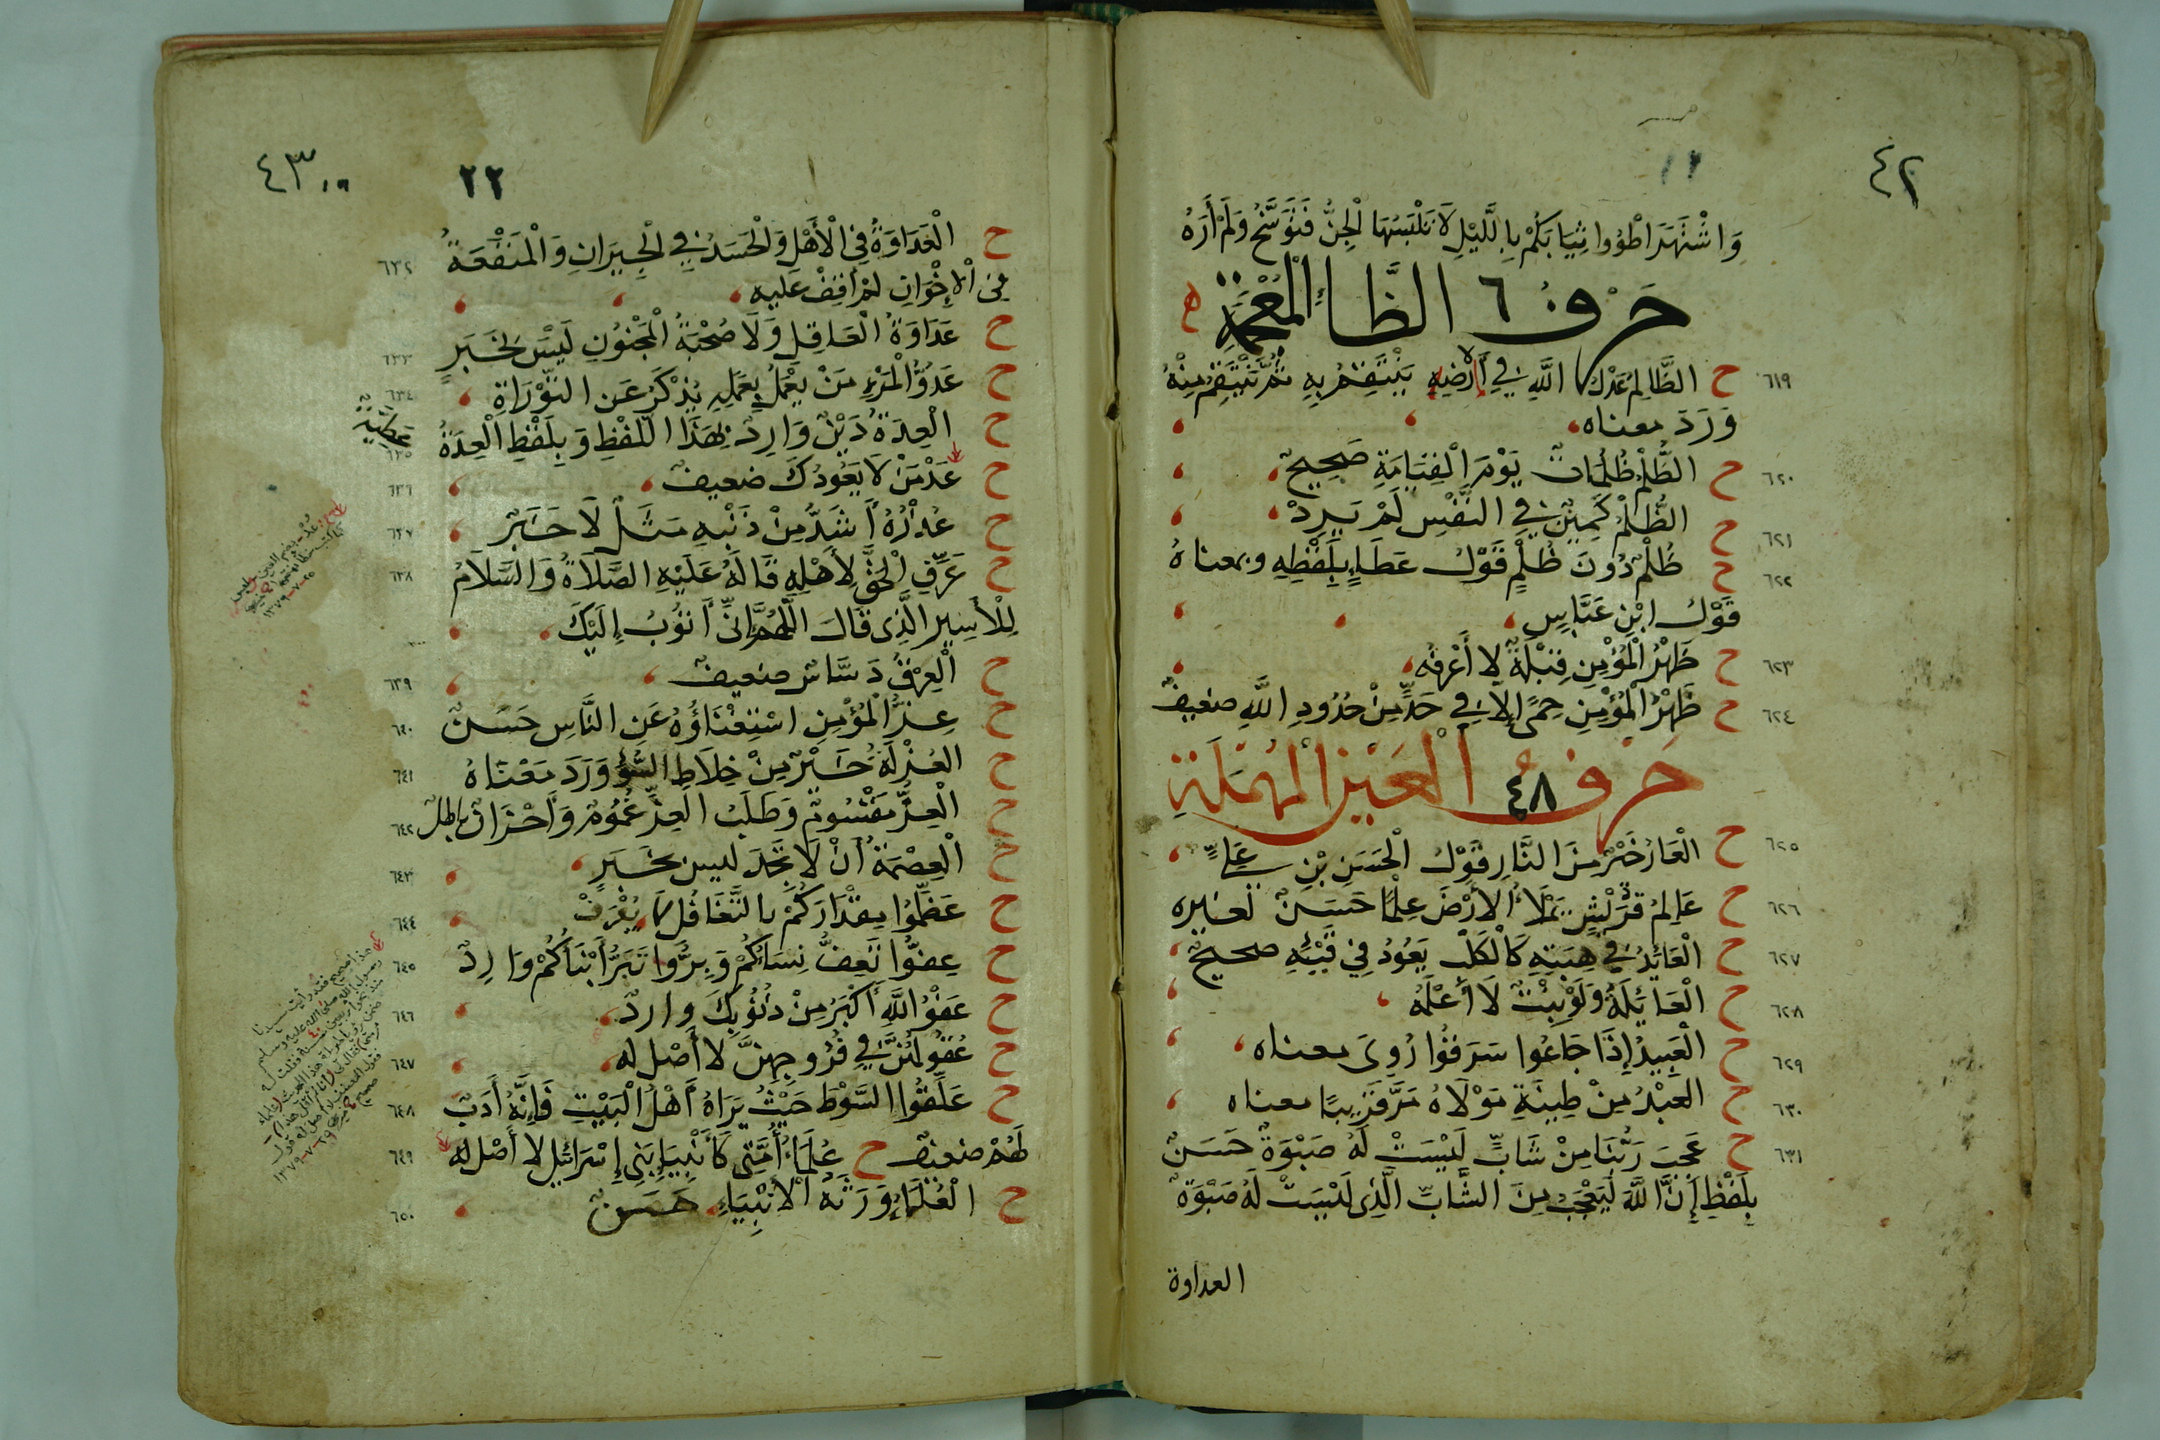 ٤٢
١٢
وَاشْتَهَرَ اطْوُوا ثِيَابَكُمْ بِاللَّيْلِ لَا تَلْبَسُهَا الْجِنُّ فَتَوَسَّخُ وَلَمْ أَرَهُ
حَرْفُ ٦ الظَّاءِ الْمُعْجَمَةِ
٦١٩ ح الظَّالِمُ عَدْلُ اللَّهِ فِي أَرْضِهِ يَنْتَقِمُ بِهِ ثُمَّ يَنْتَقِمُ مِنْهُ
وَرَدَ معناه
٦٢٠ ح الظُّلْمُ ظُلُمَاتٌ يَوْمَ الْقِيَامَةِ صَحِيحٌ
٦٢١ ح الظُّلْمُ كَمِينٌ فِي النَّفْسِ لَمْ يَرِدْ
٦٢٢ ح ظُلْمٌ دُونَ ظُلْمٍ قَوْلُ عَطَاءٍ بِلَفْظِهِ وبمعناهُ
قَوْلُ ابْنِ عَبَّاسٍ
٦٢٣ ح ظَهْرُ الْمُؤْمِنِ قِبْلَةٌ لا أَعْرِفُه
٦٢٤ ح ظَهْرُ الْمُؤْمِنِ حِمًى إِلَّا فِي حَدٍّ مِنْ حُدُودِ اللَّهِ ضعيفٌ
حَرْفُ ٤٨ الْعَيْنِ الْمُهْمَلَةِ
٦٢٥ ح الْعَارُ خَيْرٌ مِنَ النَّارِ قَوْلُ الْحَسَنِ بْنِ عَلِيٍّ
٦٢٦ ح عَالِمُ قُرَيْشٍ يَمْلَأُ الأَرْضَ عِلْمًا حَسَنٌ لغيره
٦٢٧ ح الْعَائِدُ فِي هِبَتِهِ كَالْكَلْبِ يَعُودُ فِي قَيْئِهِ صحيحٌ
٦٢٨ ح الْعَائِلَةُ وَلَوْ بِبِنْتٍ لَا أَعْلَمُهُ
٦٢٩ ح الْعَبِيدُ إِذَا جَاعُوا سَرَقُوا رُوِيَ معناه
٦٣٠ ح الْعَبْدُ مِنْ طِينَةِ مَوْلَاهُ مَرَّ قَرِيبًا معناه
٦٣١ ح عَجِبَ رَبُّنَا مِنْ شَابٍّ لَيْسَتْ لَهُ صَبْوَةٌ حَسَنٌ
بِلَفْظِ إِنَّ اللَّهَ لَيَعْجَبُ مِنَ الشَّابِّ الَّذِي لَيْسَتْ لَهُ صَبْوَةٌ
العداوة
٤٣
٢٢
٦٣٢ ح الْعَدَاوَةُ فِي الْأَهْلِ وَالْحَسَدُ فِي الْجِيرَانِ وَالْمَنْفَعَةُ
فِي الْإِخْوَانِ لَمْ أَقِفْ عَلَيه
٦٣٣ ح عَدَاوَةُ الْعَاقِلِ وَلَا صُحْبَةُ الْمَجْنُونِ لَيْسَ بِخَبَرٍ
٦٣٤ ح عَدُوُّ الْمَرْءِ مَنْ يَعْمَلُ بِعَمَلِهِ يُذْكَرُ عَنِ التَّوْرَاةِ
٦٣٥ ح الْعِدَةُ دَيْنٌ وَارِدٌ بِهَذَا اللَّفْظِ وَبِلَفْظِ الْعِدَةُ
عَطِيَّةٌ
٦٣٦ ح عُدْ مَنْ لَا يَعُودُكَ ضَعِيفٌ
٦٣٧ ح عُذْرُهُ أَشَدُّ مِنْ ذَنْبِهِ مَثَلٌ لَا خَبَرٌ
٦٣٨ ح عَرَفَ الْحَقَّ لِأَهْلِهِ قَالَهُ عَلَيْهِ الصَّلَاةُ وَالسَّلَامُ
لِلْأَسِيرِ الَّذِي قَالَ اللَّهُمَّ إِنِّي أَتُوبُ إِلَيْكَ
٦٣٩ ح الْعِرْقُ دَسَّاسٌ ضعيفٌ
٦٤٠ ح عِزُّ الْمُؤْمِنِ اسْتِغْنَاؤُهُ عَنِ النَّاسِ حَسَنٌ
٦٤١ ح الْعُزْلَةُ خَيْرٌ مِنْ خِلَاطِ السُّوءِ وَرَدَ مَعْنَاهُ
٦٤٢ ح الْعِزُّ مَقْسُومٌ وَطَلَبُ الْعِزِّ غُمُومٌ وَأَحْزَانٌ باطلٌ
٦٤٣ ح الْعِصْمَةُ أَنْ لَا تَجِدَ ليس بخَبَرٍ
٦٤٤ ح عَظِّمُوا مِقْدَارَكُمْ بِالتَّغَافُلِ لَا يُعْرَفُ
٦٤٥ ح عِفُّوا تَعِفُّ نِسَاؤُكُمْ وَبِرُّوا تَبَرُّ أَبْنَاؤُكُمْ وَارِدٌ
٦٤٦ ح عَفْوُ اللَّهِ أَكْبَرُ مِنْ ذُنُوبِكَ واردٌ
٦٤٧ ح عُقُولُهُنَّ فِي فُرُوجِهِنَّ لا أَصْلَ له
٦٤٨ ح عَلِّقُوا السَّوْطَ حَيْثُ يَرَاهُ أَهْلُ الْبَيْتِ فَإِنَّهُ أَدَبٌ
لَهُمْ ضعيفٌ
٦٤٩ ح عُلَمَاءُ أُمَّتِي كَأَنْبِيَاءِ بَنِي إِسْرَائِيلَ لا أَصْلَ له
٦٥٠ ح الْعُلَمَاءُ وَرَثَةُ الْأَنْبِيَاءِ حَسَنٌ